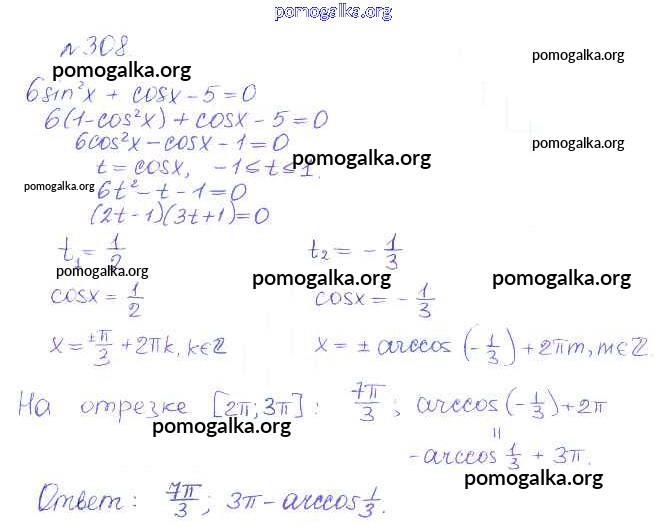 pomogalka.org
№ 308.
pomogalka.org
pomogalka.org
6sin²x + cosx - 5 = 0
6(1-cos²x) + cosx - 5 = 0
6cos²x - cosx - 1 = 0
pomogalka.org
t = cosx, -1 ≤ t ≤ 1.
pomogalka.org
6t² - t - 1 = 0
(2t - 1)(3t + 1) = 0
t₁ = 1/2 t₂ = - 1/3
pomogalka.org pomogalka.org pomogalka.org
cosx = 1/2 cosx = - 1/3
x = ±π/3 + 2πk, k∈Z x = ± arccos (-1/3) + 2πm, m∈Z.
На отрезке [2π; 3π] : 7π/3 ; arccos (-1/3) + 2π
pomogalka.org
=
-arccos 1/3 + 3π.
pomogalka.org
Ответ: 7π/3 ; 3π - arccos 1/3.